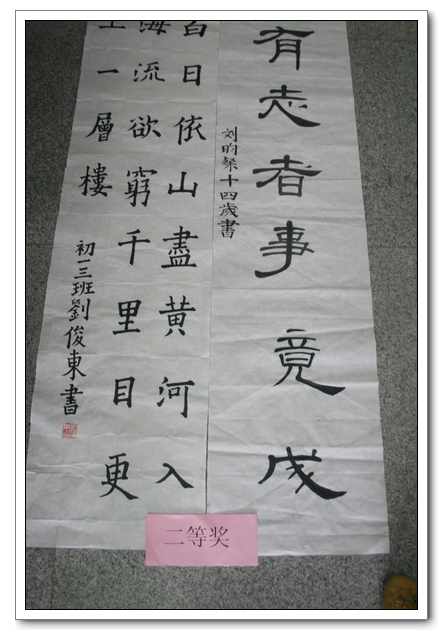 有志者事竟成
刘昀粲十四歲書
白日依山盡黄河入
海流欲窮千里目更
上一層樓
初一三班劉俊東書
二等奖